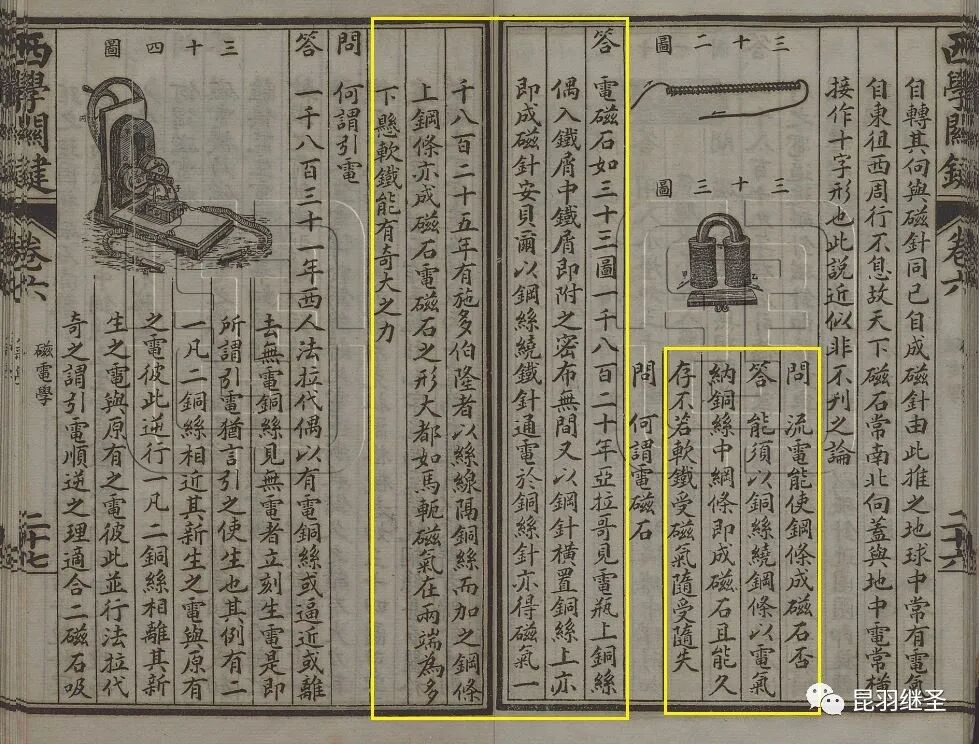 西學關鍵
卷六
二十六
自轉其向與磁針同已自成磁針由此推之地球中常有電氣
自東徂西周行不息故天下磁石常南北向蓋與地中電常橫
接作十字形也此說近似非不刊之論
三十二圖
三十三圖
問 流電能使鋼條成磁石否
答 能須以銅絲繞鋼條以電氣
納銅絲中綱條即成磁石且能久
存不若軟鐵受磁氣隨受隨失
問 何謂電磁石
答 電磁石如三十三圖一千八百二十年亞拉哥見電瓶上銅絲
偶入鐵屑中鐵屑即附之密布無間又以鋼針橫置銅絲上亦
即成磁針安貝爾以銅絲繞鐵針通電於銅絲針亦得磁氣一
千八百二十五年有施多伯隆者以絲線隔銅絲而加之鋼條
上鋼條亦成磁石電磁石之形大都如馬軛磁氣在兩端為多
下懸軟鐵能有奇大之力
問 何謂引電
答 一千八百三十一年西人法拉代偶以有電銅絲或逼近或離
三十四圖
去無電銅絲見無電者立刻生電是即
所謂引電猶言引之使生也其例有二
一凡二銅絲相近其新生之電與原有
之電彼此逆行一凡二銅絲相離其新
生之電與原有之電彼此並行法拉代
奇之謂引電順逆之理適合二磁石吸
西學關鍵
卷六
磁電學
二十七
昆羽继圣